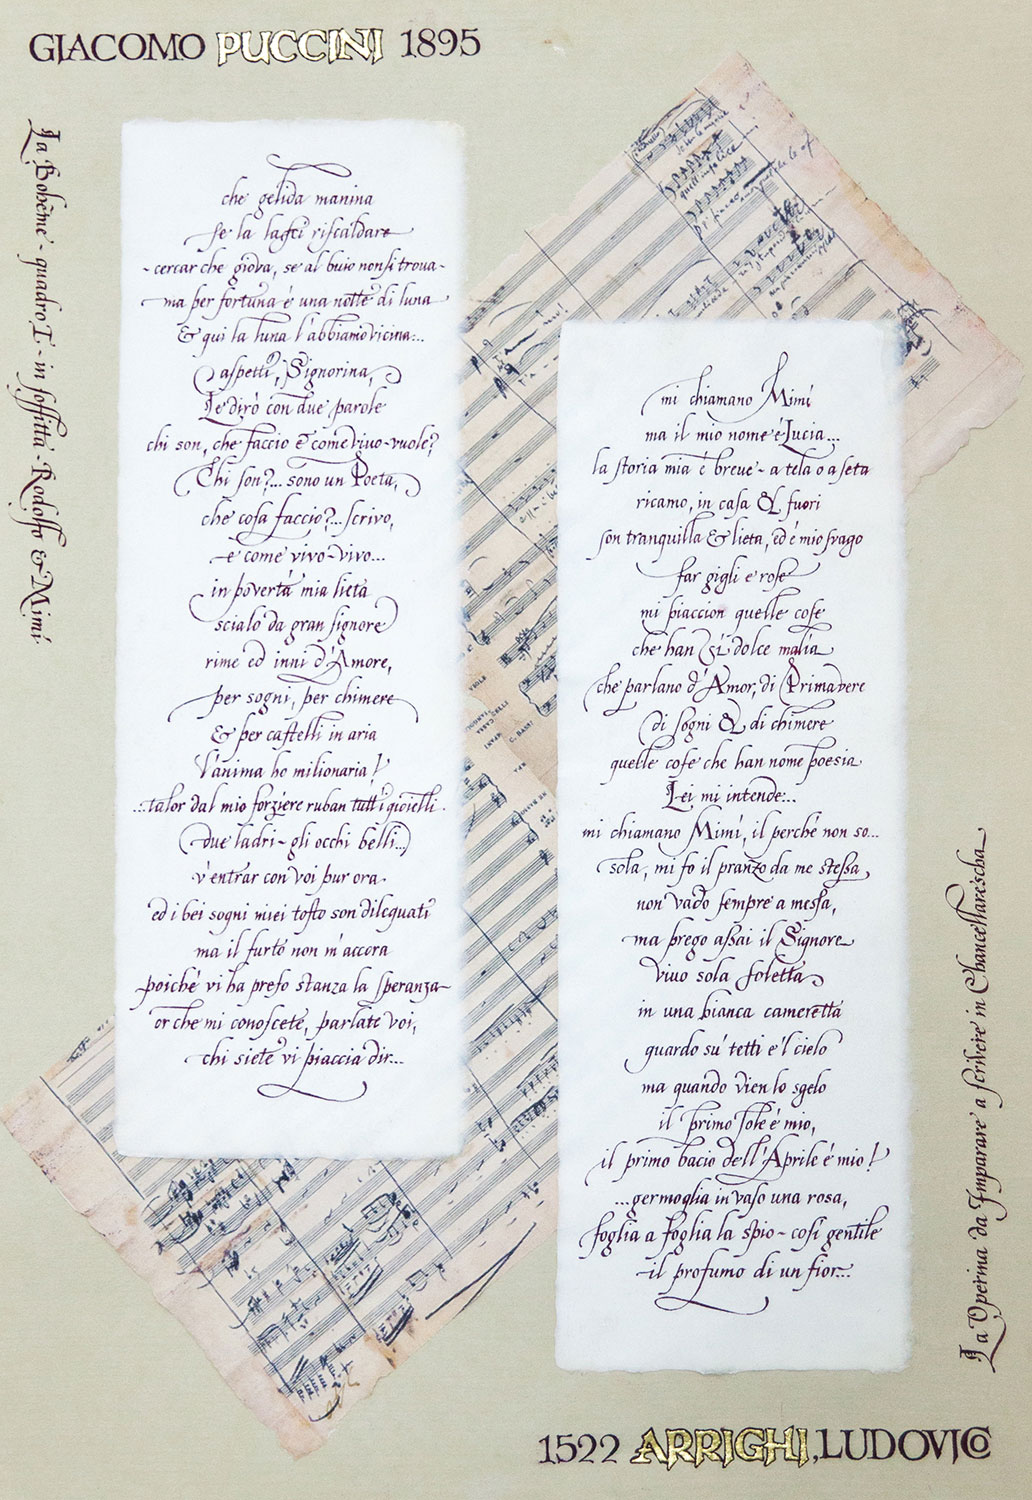 GIACOMO PUCCINI 1895
La Bohème - quadro I - in soffitta - Rodolfo & Mimí
che gelida manina
se la lasci riscaldare
- cercar che giova, se al buio non si trova -
ma per fortuna é una notte di luna
& qui la luna l'abbiamo vicina...
aspetti, Signorina,
le dirò con due parole
chi son, che faccio e come vivo - vuole?
Chi son?... sono un Poeta,
che cosa faccio?... scrivo,
e come vivo - vivo...
in povertá mia lieta
scialo da gran signore
rime ed inni d'Amore,
per sogni, per chimere
& per castelli in aria
l'anima ho milionaria!
...talor dal mio forziere ruban tutti i gioielli
(due ladri - gli occhi belli...)
v'entrar con voi pur ora
ed i bei sogni miei tosto son dileguati
ma il furto non m'accora
poiché vi ha preso stanza la speranza
or che mi conoscete, parlate voi,
chi siete vi piaccia dir...
mi chiamano Mimí
ma il mio nome é Lucia...
la storia mia é breve - a tela o a seta
ricamo, in casa & fuori
son tranquilla & lieta, ed é mio svago
far gigli e rose
mi piaccion quelle cose
che han sí dolce malia
che parlano d'Amor, di Primavere
di sogni & di chimere
quelle cose che han nome poesia
Lei mi intende...
mi chiamano Mimí, il perché non so...
sola, mi fo il pranzo da me stessa,
non vado sempre a messa,
ma prego assai il Signore
vivo sola soletta
in una bianca cameretta
guardo su' tetti e'l cielo
ma quando vien lo sgelo
il primo sole é mio,
il primo bacio dell'Aprile é mio!
...germoglia in vaso una rosa,
foglia a foglia la spio - cosí gentile
il profumo di un fior...
La Operina da Imparare a scrivere in Chancellarescha
1522 ARRIGHI, LUDOVICO